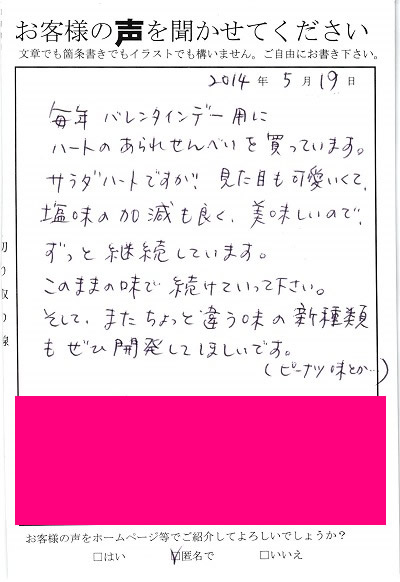 お客様の声を聞かせてください
文章でも箇条書きでもイラストでも構いません。ご自由にお書き下さい。
2014年5月19日
毎年 バレンタインデー用に
ハートのあられせんべいを買っています。
サラダハートですが!! 見た目も可愛いくて、
塩味の加減も良く、美味しいので、
ずっと継続しています。
このままの味で続けていって下さい。
そして、またちょっと違う味の新種類
もぜひ開発してほしいです。
(ピーナツ味とか…)
切り取り線
お客様の声をホームページ等でご紹介してよろしいでしょうか?
□はい ☑匿名で □いいえ